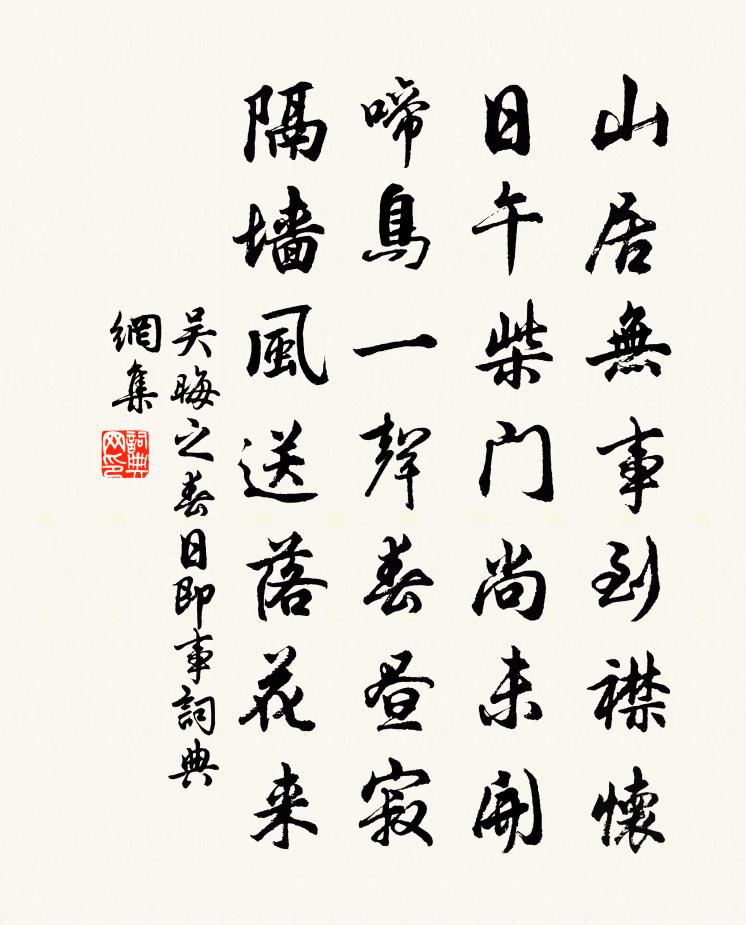 山居無事到襟懷
日午柴门尚未開
啼鳥一聲春昼寂
隔墻風送落花来
吴晦之春日即事詞典
網集
詞典
网印